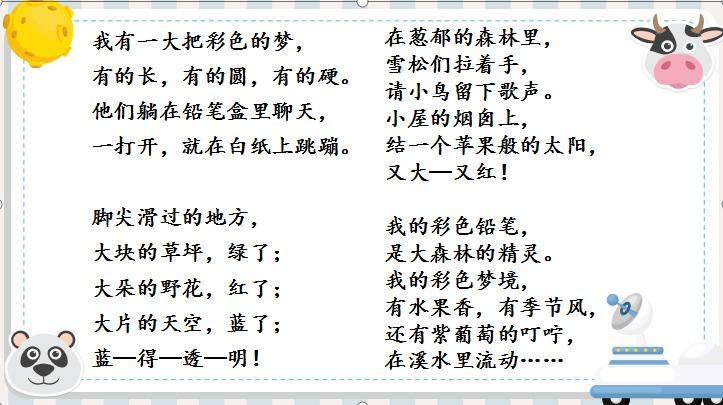 我有一大把彩色的梦，
有的长，有的圆，有的硬。
他们躺在铅笔盒里聊天，
一打开，就在白纸上跳蹦。
脚尖滑过的地方，
大块的草坪，绿了；
大朵的野花，红了；
大片的天空，蓝了；
蓝—得—透—明！
在葱郁的森林里，
雪松们拉着手，
请小鸟留下歌声。
小屋的烟囱上，
结一个苹果般的太阳，
又大—又红！
我的彩色铅笔，
是大森林的精灵。
我的彩色梦境，
有水果香，有季节风，
还有紫葡萄的叮咛，
在溪水里流动……